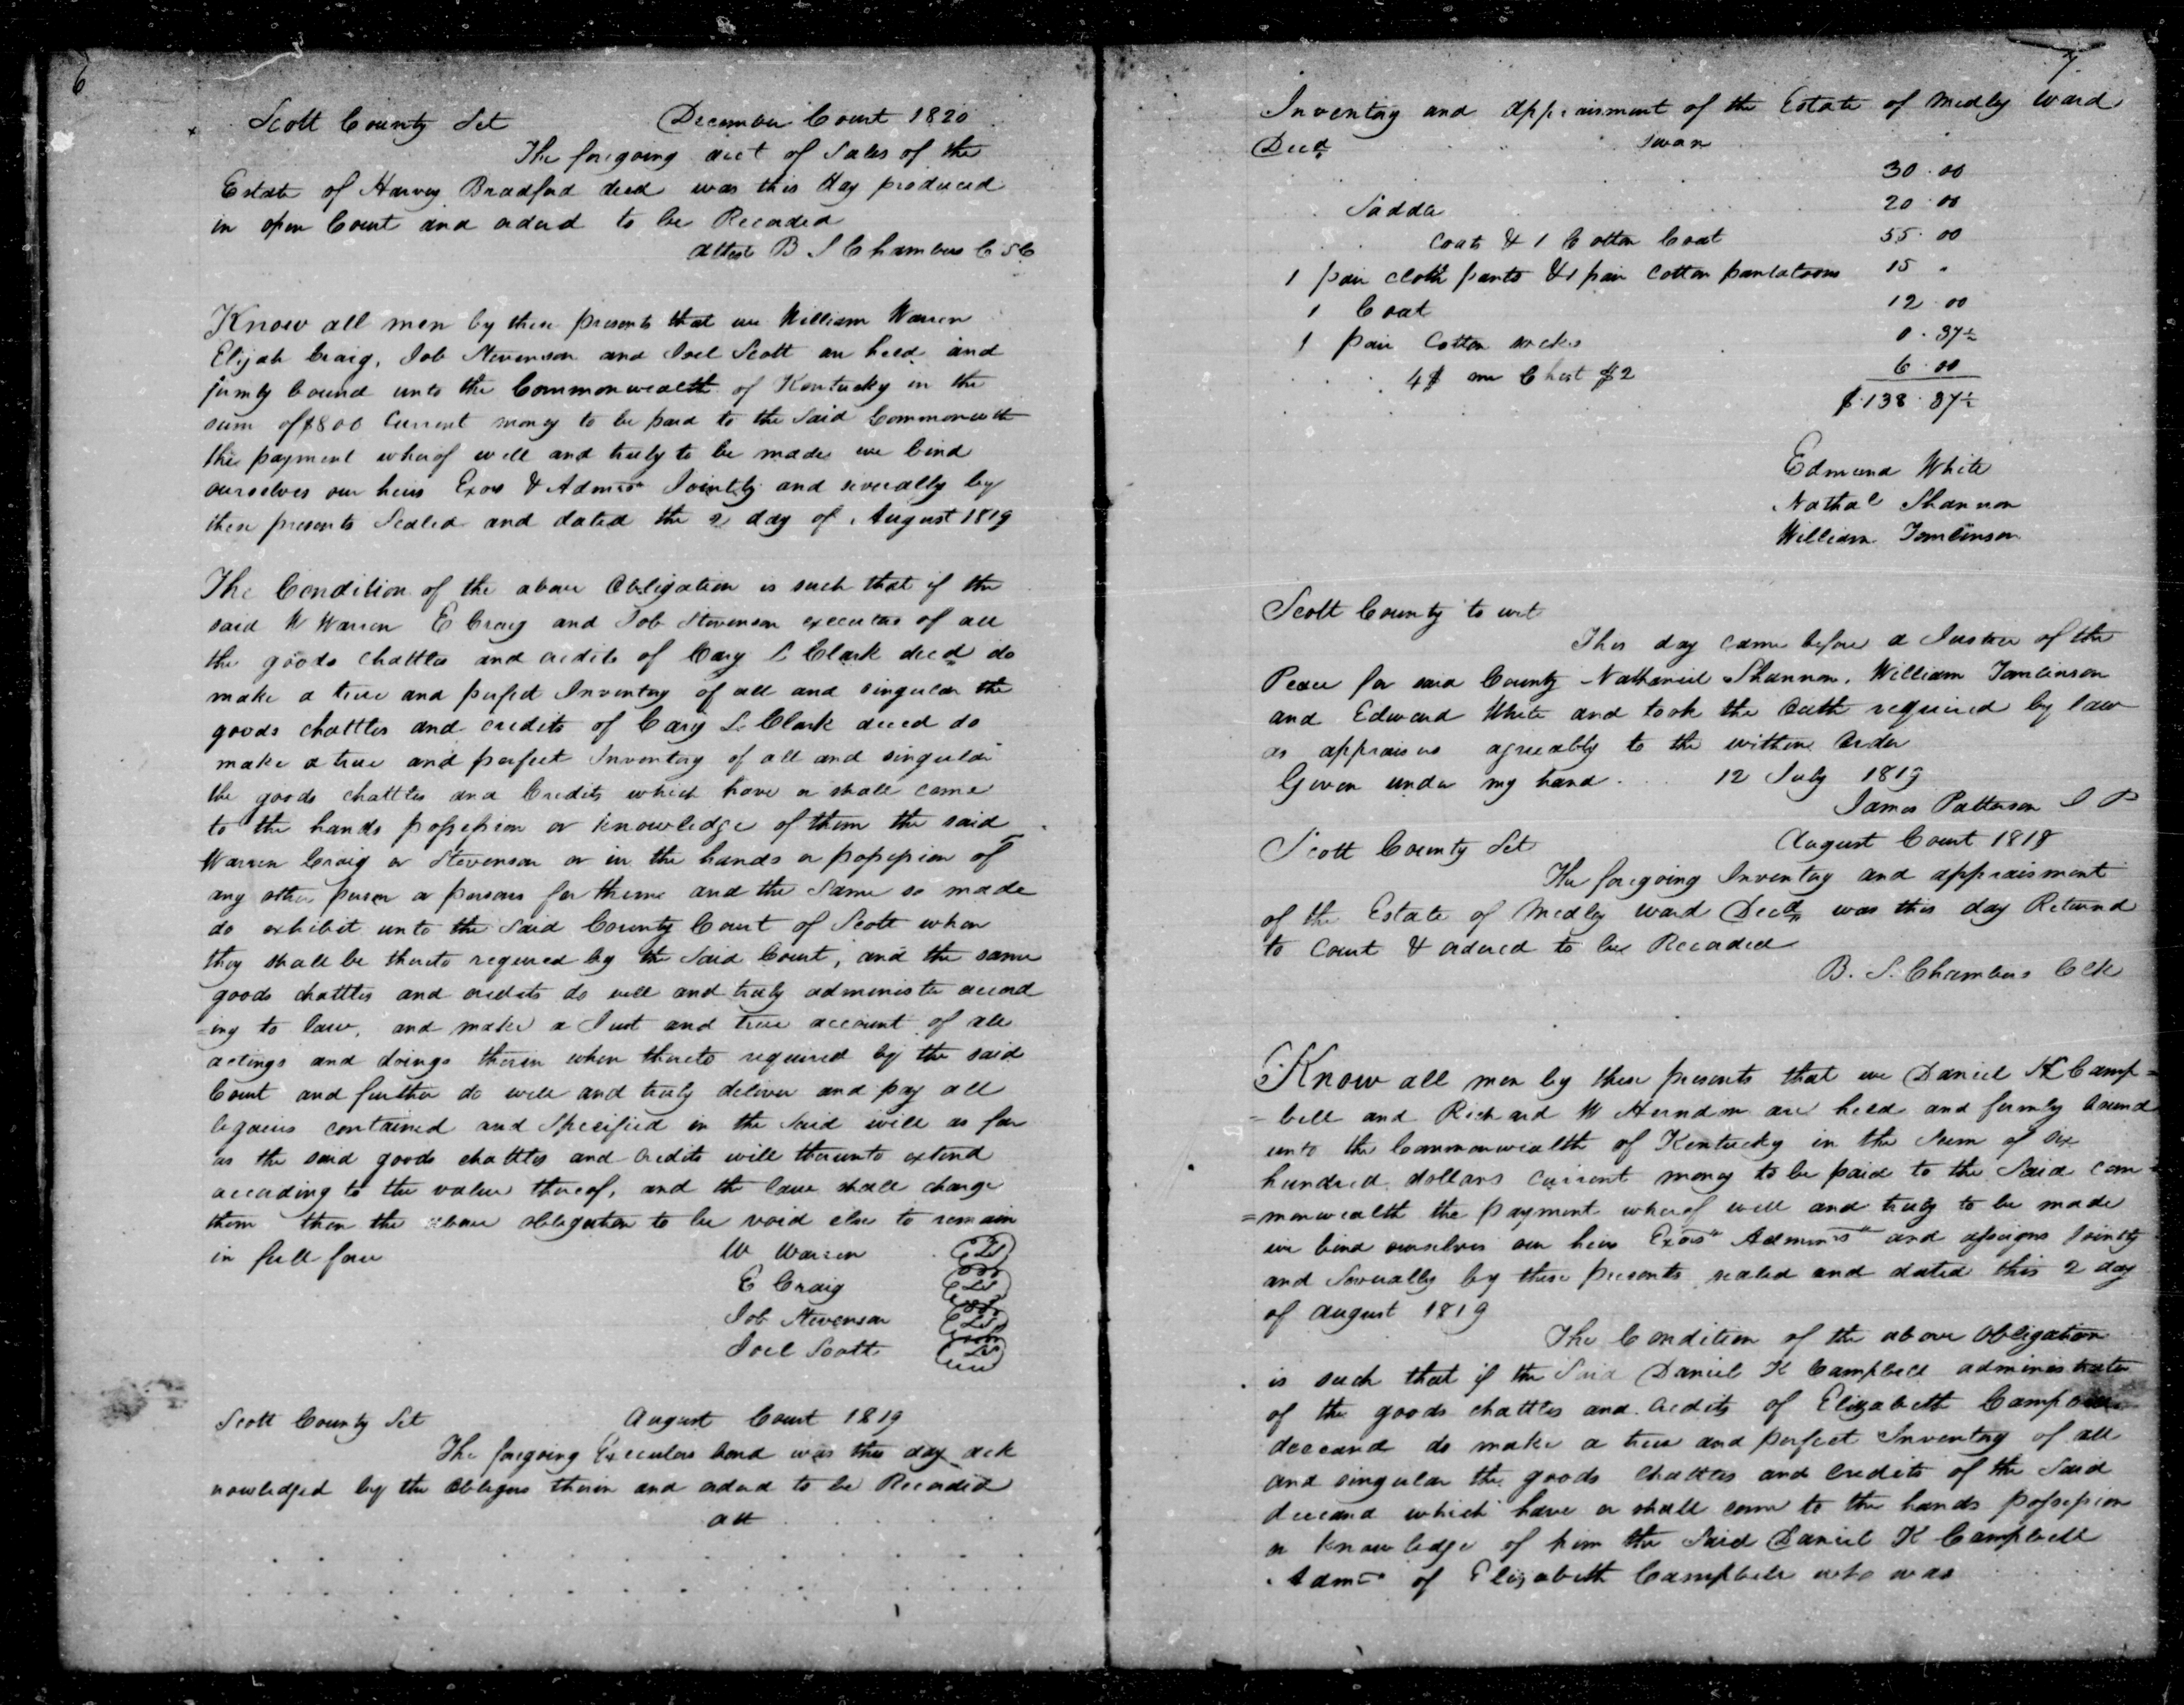 6
Scott County Sct December Court 1820
The foregoing acct of Sales of the
Estate of Harvey Bradford decd was this day produced
in open Court and ordered to be Recorded
Attest B S Chambers C S C
Know all men by these presents that we William Warren
Elijah Craig, Job Stevenson and Joel Scott are held and
firmly bound unto the Commonwealth of Kentucky in the
sum of $800 Current money to be paid to the Said Commonwth
the payment wherof well and truly to be made we bind
ourselves our heirs Exors & Admrs Jointly and severally by
these presents Sealed and dated the 2 day of August 1819
The Condition of the above Obligation is such that if the
said W Warren E Craig and Job Stevenson executors of all
the goods chattles and credits of Cary L Clark decd do
make a true and perfect Inventory of all and singular the
goods chattles and credits of Cary L. Clark deced do
make a true and perfect Inventory of all and singular
the goods chattles and Credits which have or shall come
to the hands possession or knowledge of them the said
Warren Craig or Stevenson or in the hands or possession of
any other person or persons for them and the Same so made
do exhibit unto the Said County Court of Scott when
they shall be thereto required by the Said Court, and the same
goods chattles and credits do well and truly administer accord
=ing to law, and make a Just and true account of all
actings and doings therin when thereto required by the said
Court and further do well and truly deliver and pay all
legacies contained and Specified in the Said will as far
as the said goods chattles and credits will thereunto extend
according to the value thereof, and the law shall charge
them then the above obligation to be void else to remain
in full force W Warren
E Craig
Job Stevenson
Joel Scott
Scott County Sct August Court 1819
The foregoing Executors bond was this day ack
nowledged by the obligors therin and ordered to be Recorded
att
7
Inventory and Appraisment of the Estate of Medley Ward
Decd
30.00
20.00
coats & 1 Cotton Coat 55.00
1 pair cloth pants & 1 pair cotton pantaloons 15 "
1 Coat 12.00
1 pair Cotton socks 0.87½
4$ one Chest $2 6.00
$138.87½
Edmund White
Nathal Shannon
William Tomlinson
Scott County to wit
This day came before a Justice of the
Peace for said County Nathaniel Shannon, William Tomlinson
and Edward White and took the Oath required by law
as appraisers agreeably to the within Order
Given under my hand 12 July 1819
James Patterson J P
Scott County Sct August Court 1818
The foregoing Inventory and appraisment
of the Estate of Medley Ward Decd was this day Returnd
to Court & ordered to be Recorded
B. S. Chambers Clk
Know all men by these presents that we Daniel K Camp=
=bell and Richard W Herndon are held and firmly bound
unto the Commonwealth of Kentucky in the Sum of six
hundred dollars current money to be paid to the Said com=
=monwealth the payment wherof well and truly to be made
we bind ourselves our heirs Exors Adminrs and assigns Jointly
and Severally by these presents sealed and dated this 2 day
of August 1819
The Condition of the above obligation
is such that if the Said Daniel K Campbell administrator
of the goods chattles and credits of Elizabeth Campbell
deceand do make a true and perfect Inventory of all
and singular the goods chattles and credits of the Said
deceand which have or shall come to the hands possession
or knowledge of him the Said Daniel K Campbell
Admr of Elizabeth Campbell who was